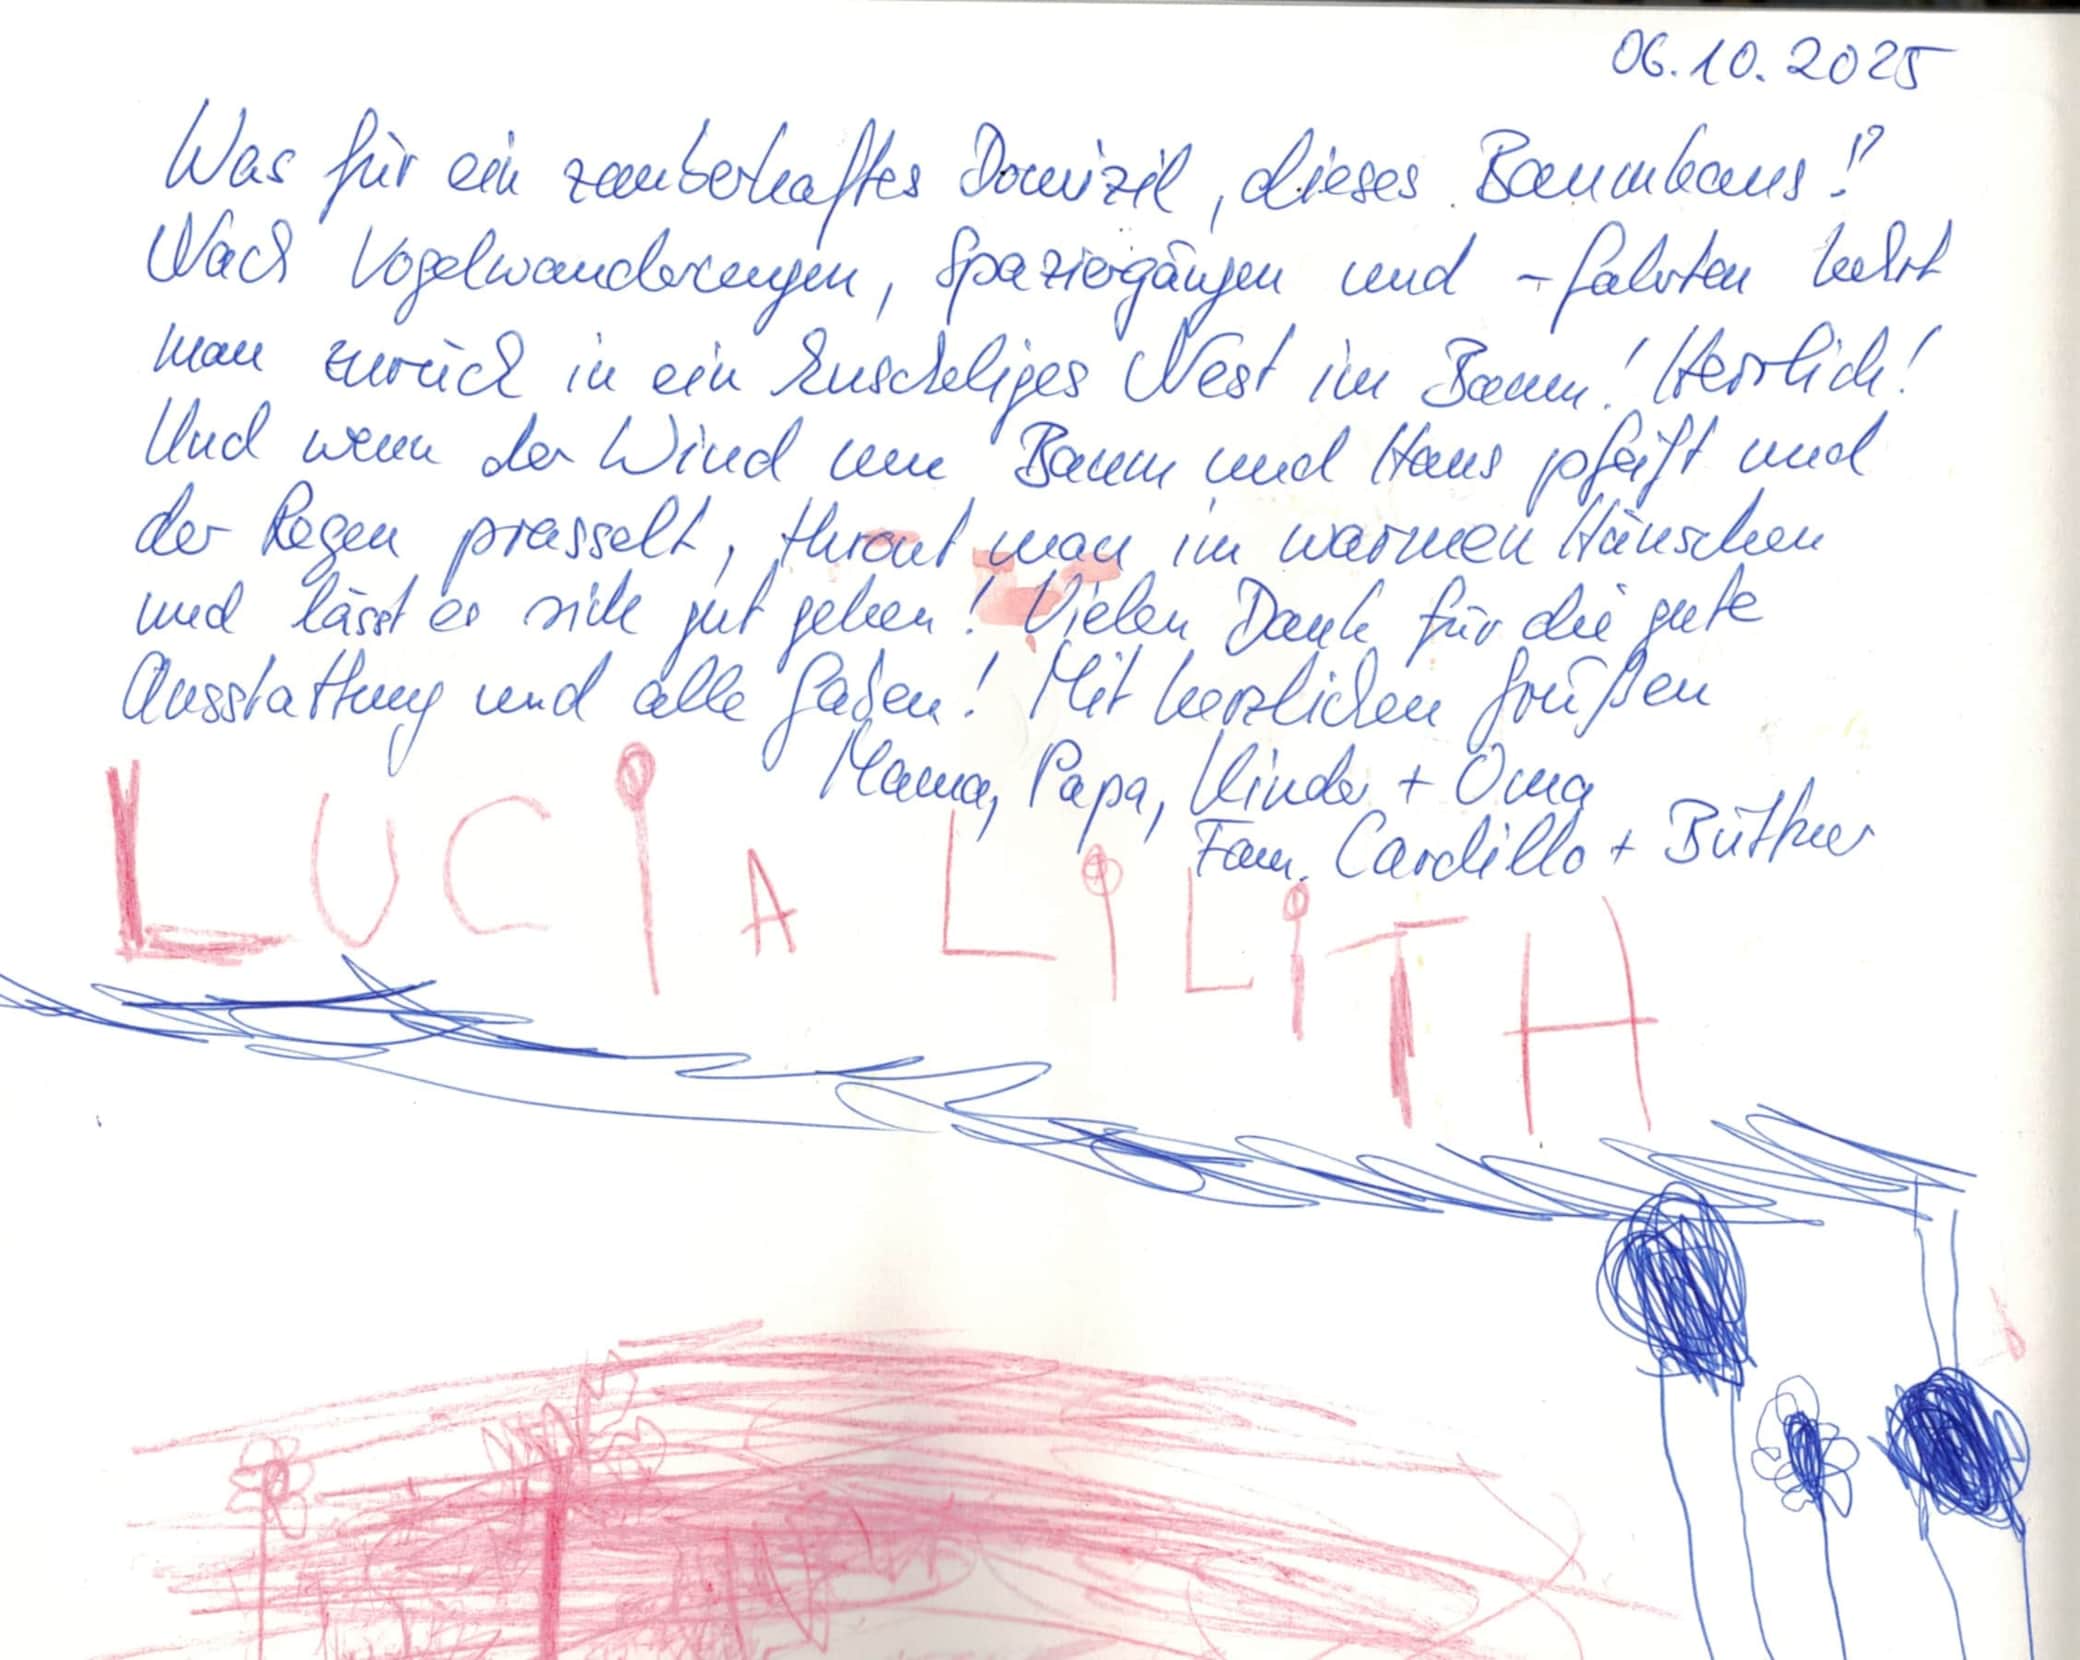 06.10.2025
Was für ein zauberhaftes Domizil, dieses Baumhaus!
Nach Vogelwanderungen, Spaziergängen und -fahrten kehrt
man zurück in ein kuscheliges Nest im Baum! Herrlich!
Und wenn der Wind um Baum und Haus pfeift und
der Regen prasselt, thront man im warmen Häuschen
und lässt es sich gut gehen! Vielen Dank für die gute
Ausstattung und alle Gaben! Mit herzlichen Grüßen
Mama, Papa, Kinder + Oma
Fam. Cardillo + Büttner
LUCiA LiLiTH